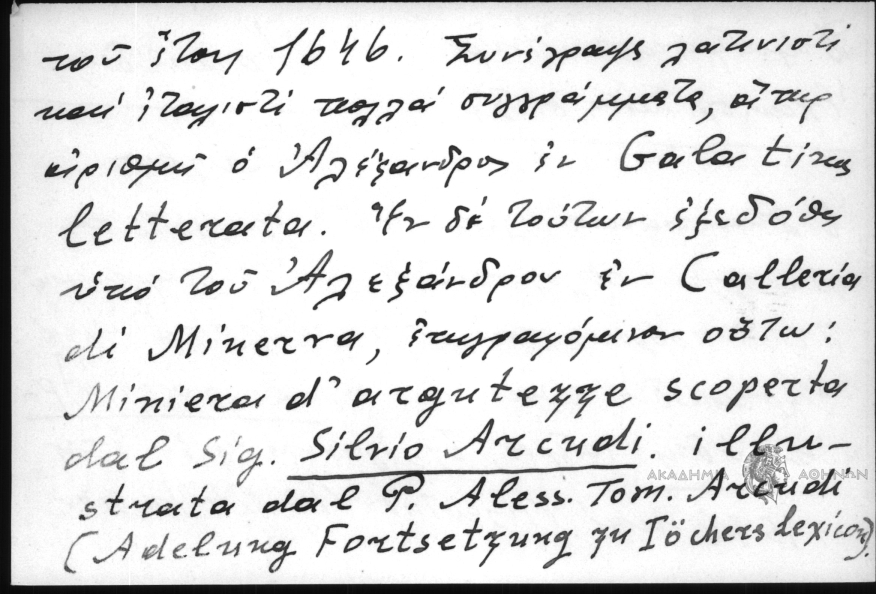 τοῦ ἔτους 1646. Συνέγραψε λατινιστὶ
καὶ ἰταλιστὶ πολλά συγγράμματα, ἅπερ
ἀριθμεῖ ὁ Ἀλέξανδρος ἐν Galatina
letterata. Ἓν δέ τούτων ἐξεδόθη
ὑπό τοῦ Ἀλεξάνδρου ἐν Calleria
di Minerva, ἐπιγραφόμενον οὕτω:
Miniera d' argutezze scoperta
dal Sig. Silvio Arcudi. illu-
strata dal P. Aless. Tom. Arcudi
(Adelung Fortsetzung zu Iöchers Lexicon).
ΑΚΑΔΗΜΙΑ ΑΘΗΝΩΝ